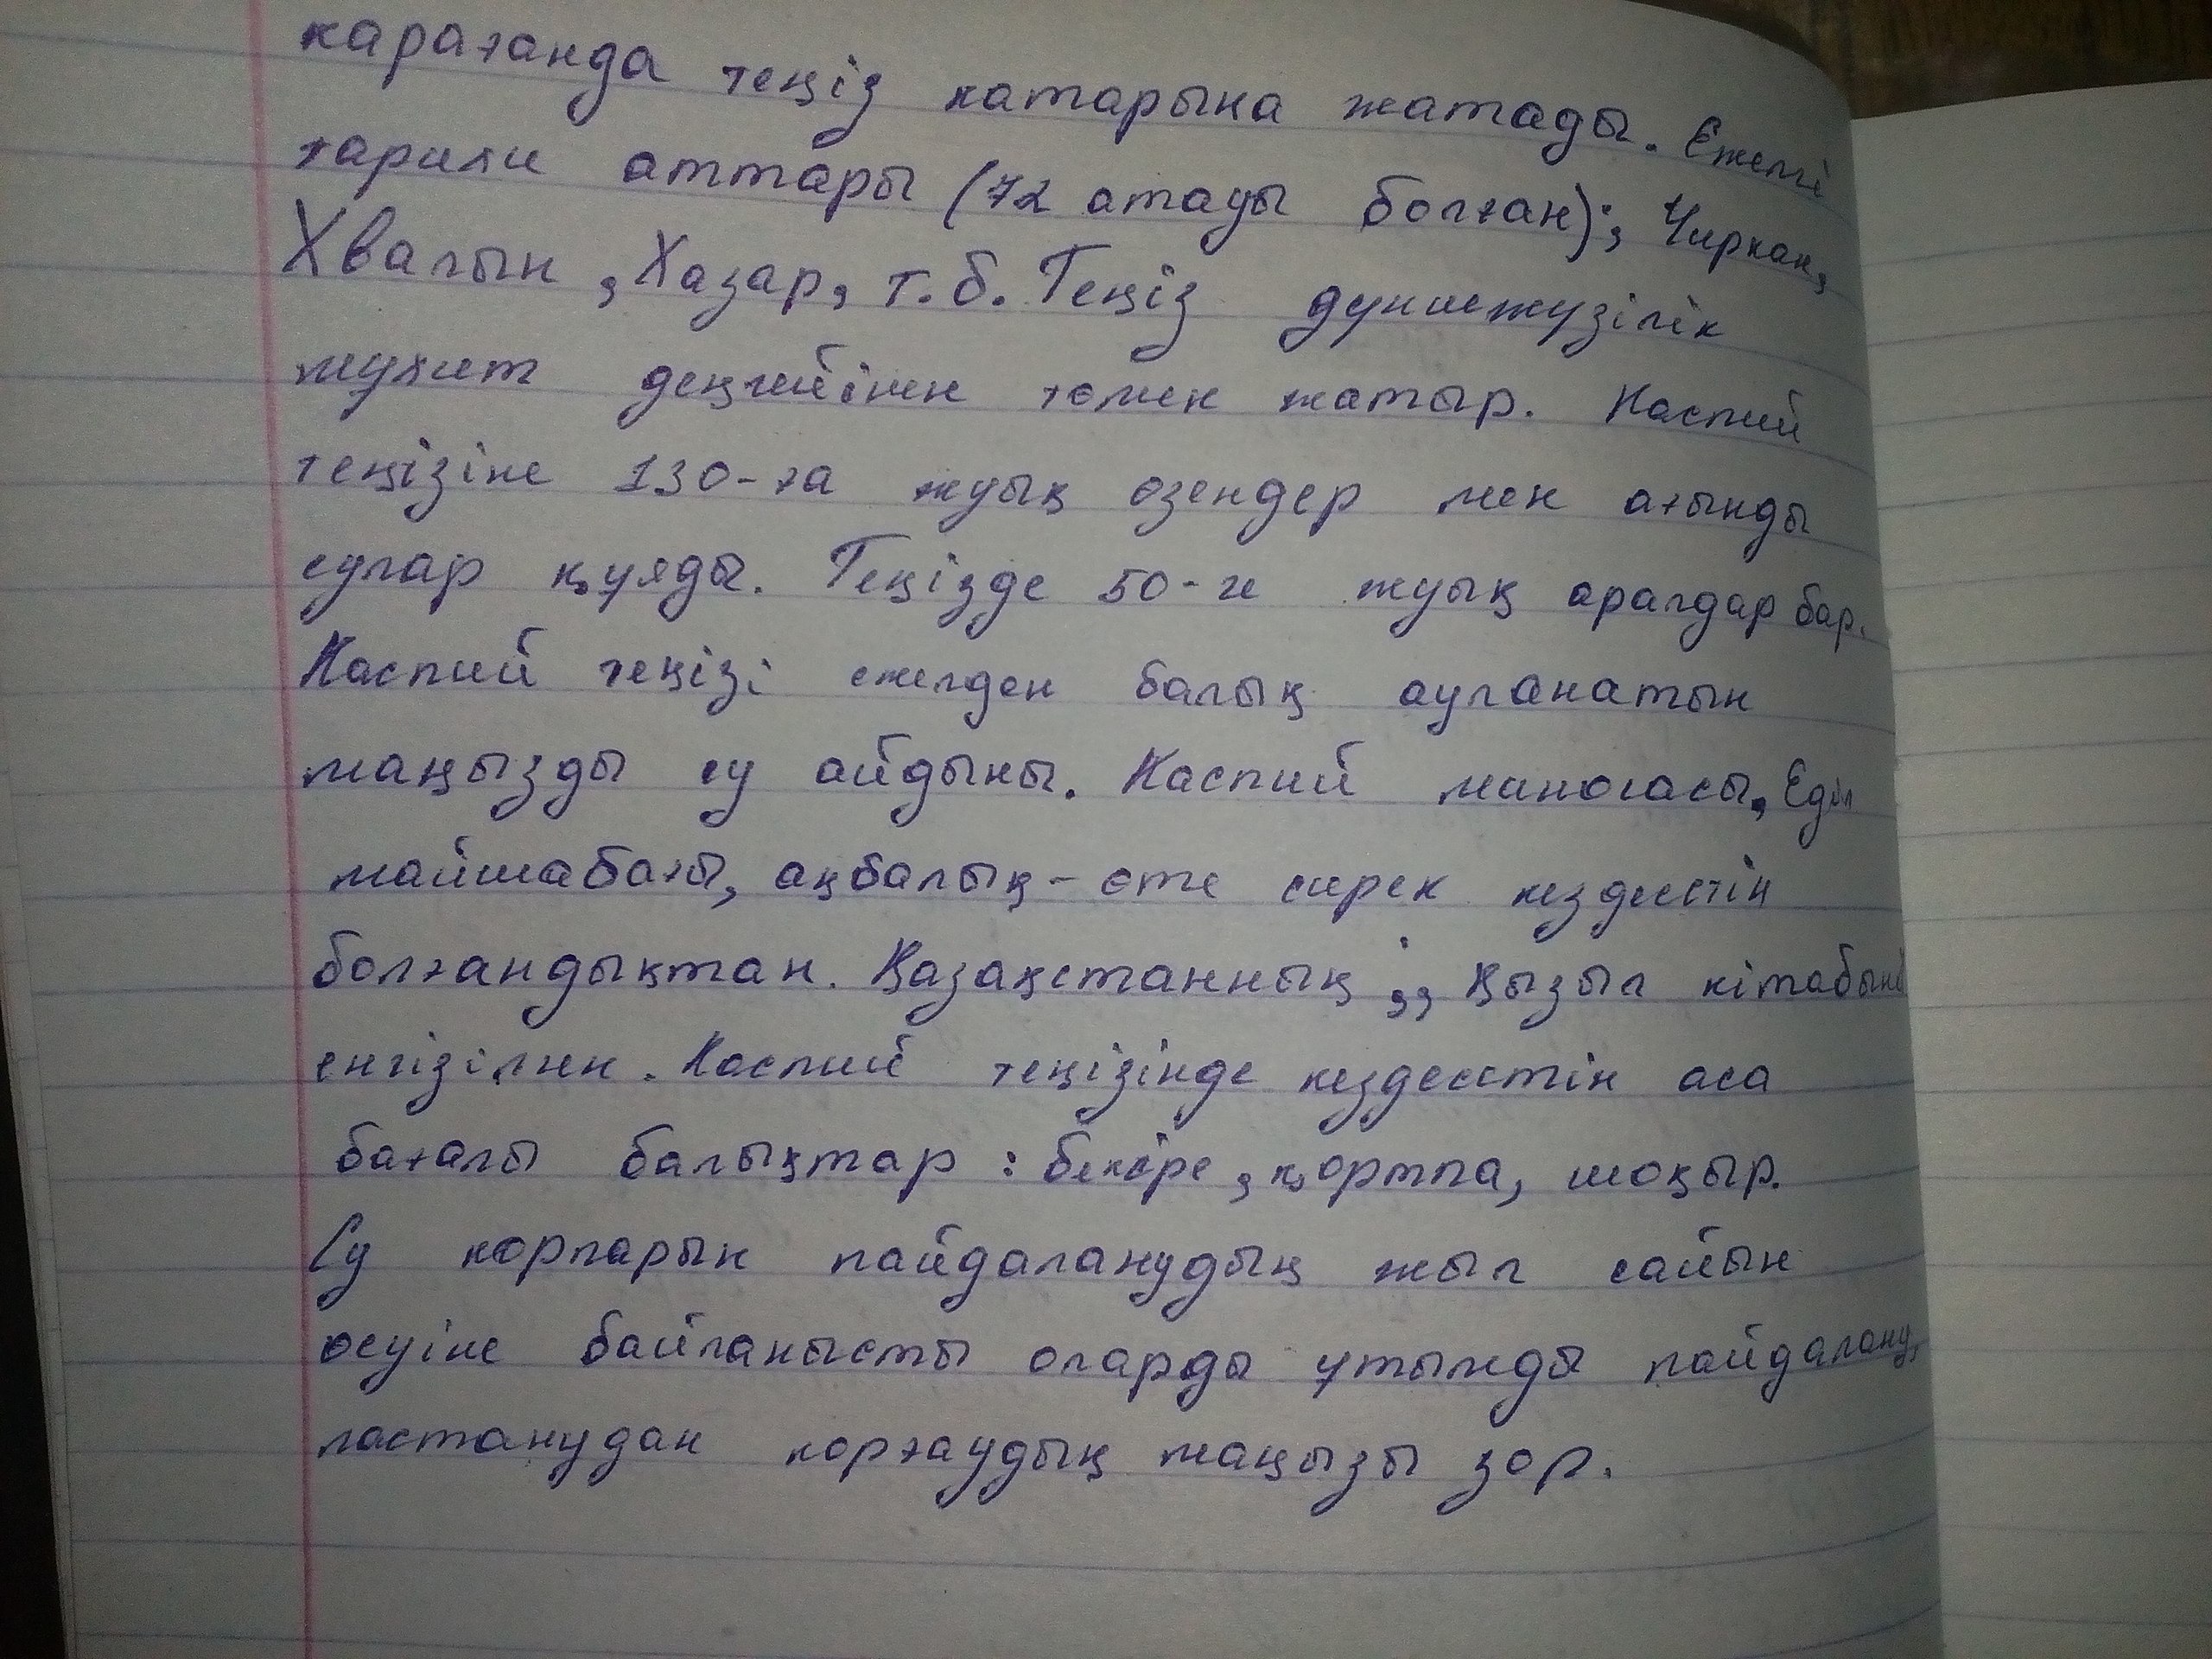 карағанда теңіз катарыңа жатады. Ежелгі
тарихи аттары (72 атауы болған); Чиркан,
Хвалын, Хазар, т.б. Теңіз дүниежүзілік
мұхит деңгейінен төмен жатыр. Каспий
теңізіне 130-ға жуық өзендер мен ағынды
сулар құяды. Теңізде 50-ге жуық аралдар бар.
Каспий теңізі ежелден балық ауланатын
маңызды су айдыны. Каспий миногасы, Еділ
майшабағы, ақбалық - өте сирек кездесетін
болғандықтан. Қазақстанның ,, Қызыл кітабына
енгізілген. Каспий теңізінде кездесетін аса
бағалы балықтар: бекіре, қортпа, шоқыр.
Су көрларын пайдаланудың жыл сайын
өсуіне байланысты оларды ұтымды пайдалану,
ластанудан корғаудың маңызы зор.